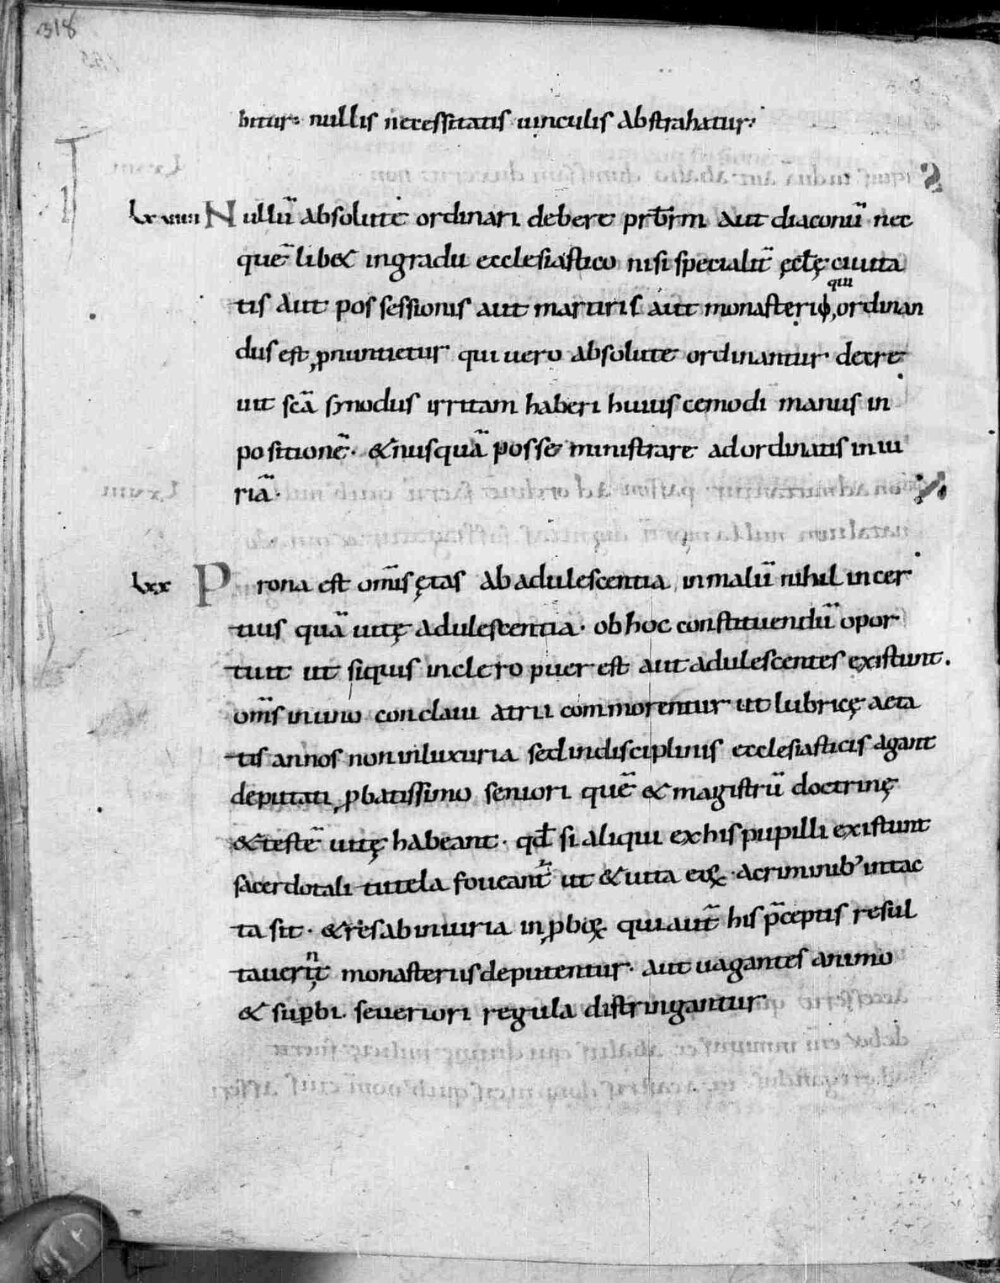 318
bitur· nullis necessitatis uinculis abstrahatur·
lxviiii Nullū absolute ordinari debere prb̄rm aut diaconū nec
quē libet in gradu ecclesiastico nisi specialit̄ ęcl̄ę ciuita
tis aut possessionis aut martiris aut monasterii qui ordinan
dus est ꝓnuntietur qui uero absolute ordinantur· decre
uit sc̄a synodus irritam haberi huiuscemodi manus in
positionē· & nusquā posse ministrare ad ordinatis iniu
riā·
lxx Prona est om̄is ętas ab adulescentia in malū nihil incer
tius quā uitę adulescentia· ob hoc constituendū opor
tuit ut siquis in clero puer est aut adulescentes existunt.
om̄s in uno conclaui atrii commorentur ut lubricę aeta
tis annos non in luxuria sed in disciplinis ecclesiasticis agant
deputati ꝓbatissimo seniori quē & magistrū doctrinę
& testē uitę habeant· qd̄ si aliqui ex his pupilli existunt
sacerdotali tutela foueant̄ ut & uita eoꝝ a criminib' intac
ta sit· & res ab iniuria inꝓboꝝ qui aut̄ his p̄ceptis resul
tauerint monasteriis deputentur· aut uagantes animo
& suꝑbi seueriori regula distringantur